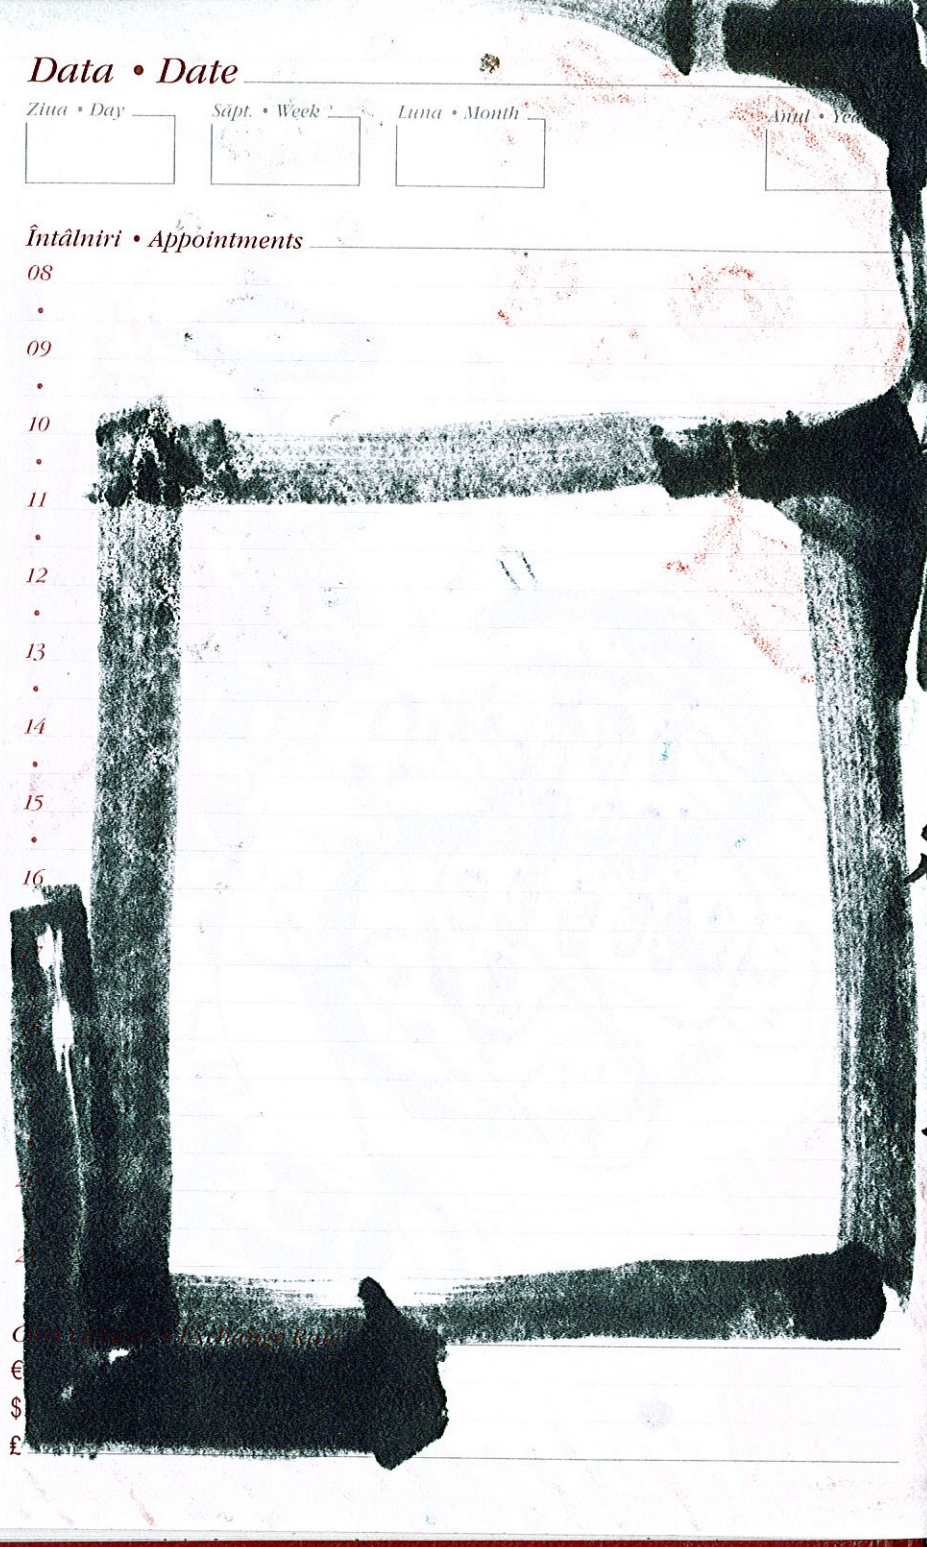 Data • Date
Ziua • Day Săpt. • Week Luna • Month Anul •
Întâlniri • Appointments
08
•
09
•
10
•
11
•
12
•
13
•
14
•
15
•
16
• Exchange Rate
€
$
£